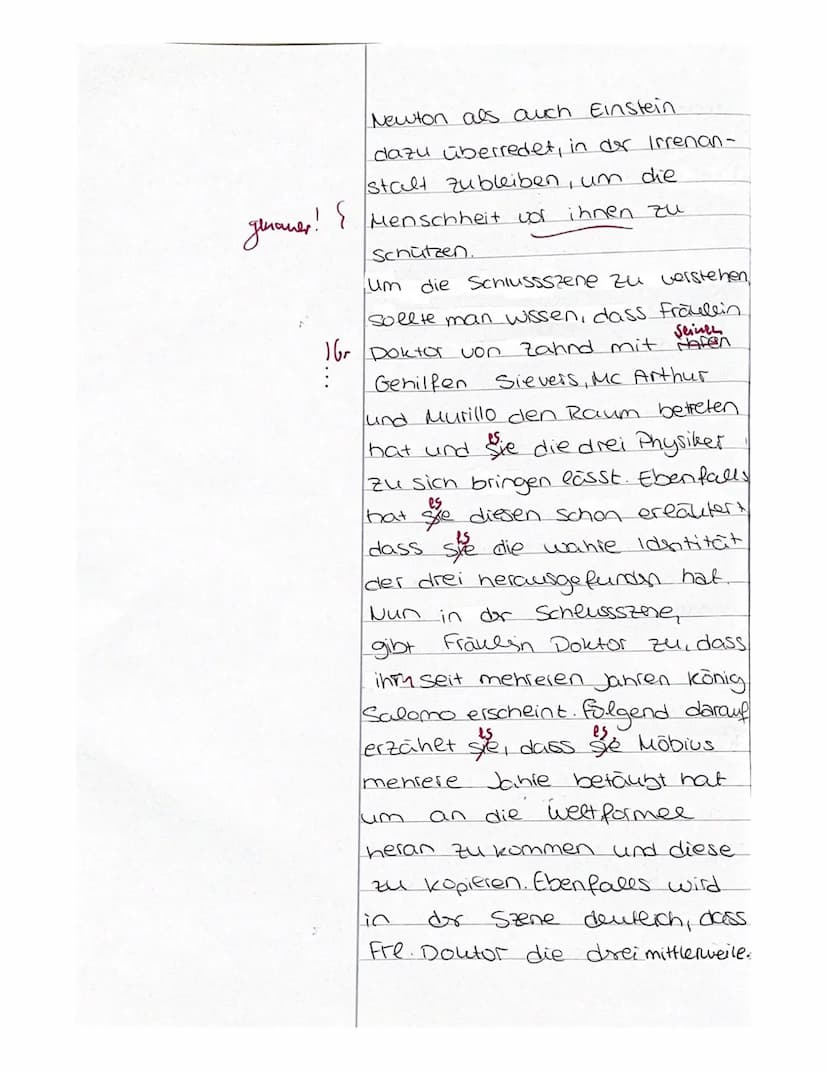 Newton als auch Einstein
dazu überredet, in der Irrenan-
stalt zubleiben, um die
genauer! { Menschheit vor ihnen zu
schützen.
Um die Schlussszene zu verstehen,
sollte man wissen, dass Fräulein
seinen
)Gr Doktor von Zahnd mit ihren
Gehilfen Sievers, Mc Arthur
und Murillo den Raum betreten
es
hat und sie die drei Physiker
zu sich bringen lässt. Ebenfalls
es
hat sie diesen schon erläutert
es
dass sie die wahre Identität
der drei herausgefunden hat.
Nun in der Schlussszene,
gibt Fräulein Doktor zu, dass
ihm seit mehreren Jahren König
Salomo erscheint. Folgend darauf
es es
erzählt sie, dass sie Möbius
mehrere Jahre betäubt hat
um an die Weltformel
heran zu kommen und diese
zu kopieren. Ebenfalls wird
in der Szene deutlich, dass
Frl. Doktor die drei mittlerweile